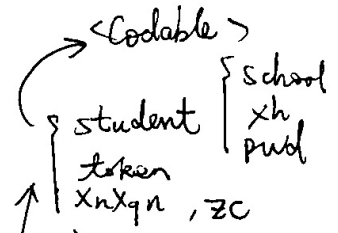 <Codable>
school
xh
pwd
student
token
xnxqn , zc